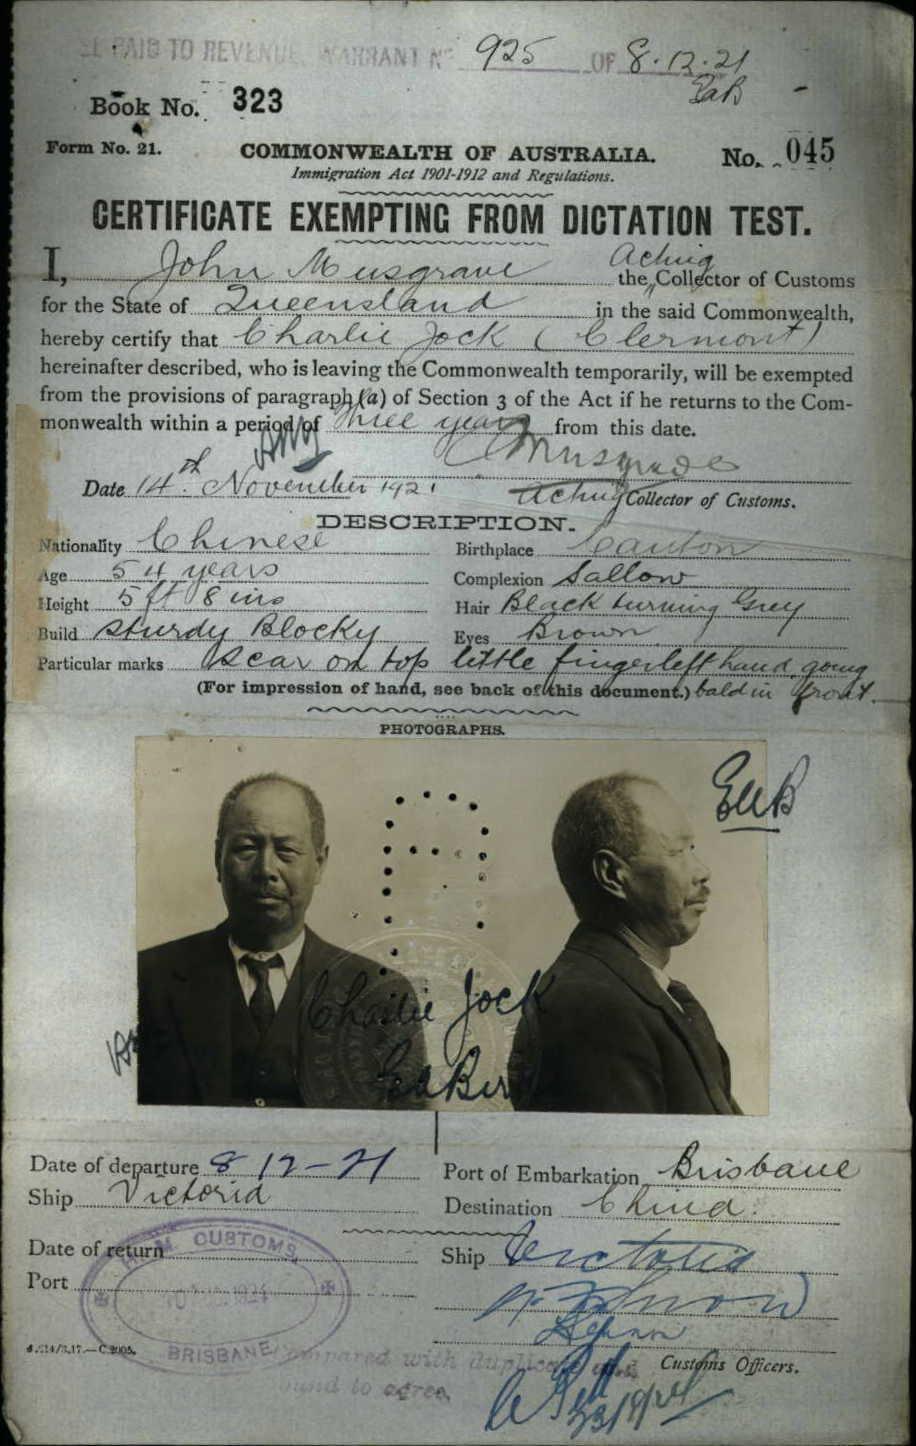 PAID TO REVENUE. WARRANT No 925 OF 8.12.21
Book No. 323
Form No. 21.
COMMONWEALTH OF AUSTRALIA.
No. 045
Immigration Act 1901-1912 and Regulations.
CERTIFICATE EXEMPTING FROM DICTATION TEST.
I, John Musgrave the Acting Collector of Customs
for the State of Queensland in the said Commonwealth,
hereby certify that Charlie Jock (Clermont)
hereinafter described, who is leaving the Commonwealth temporarily, will be exempted
from the provisions of paragraph (a) of Section 3 of the Act if he returns to the Com-
monwealth within a period of Three years from this date.
Musgrave
Date 14th November 1921
Acting Collector of Customs.
DESCRIPTION.
Nationality Chinese
Birthplace Canton
Age 54 years
Complexion Sallow
Height 5 ft 8 ins
Hair Black turning Grey
Build Sturdy Blocky
Eyes Brown
Particular marks Scar on top little finger left hand, going
(For impression of hand, see back of this document.) bald in front.
PHOTOGRAPHS.
Charlie Jock
Date of departure 8-12-21
Port of Embarkation Brisbane
Ship Victoria
Destination China.
Date of return
Ship Victoria
Port
H.M. CUSTOMS
BRISBANE
Compared with duplicate and
found to agree
Customs Officers.